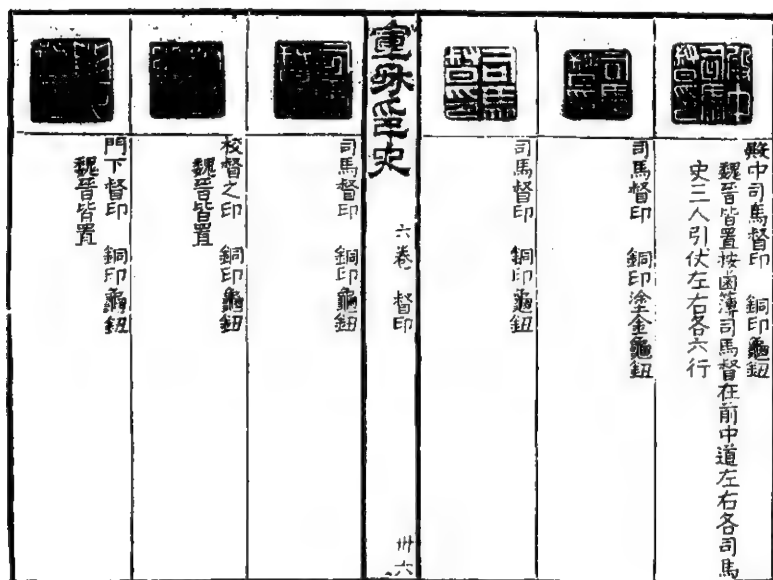 殿中司馬督印
殿中司馬督印　銅印龜鈕
魏晉皆置按鹵簿司馬督在前中道左右各司馬
史三人引仗左右各六行
司馬督印
司馬督印　銅印塗金龜鈕
司馬督印
司馬督印　銅印龜鈕
宣和印史　六卷　督印　卅六
司馬督印　銅印龜鈕
校督之印　銅印龜鈕
魏晉皆置
門下督印　銅印龜鈕
魏晉皆置